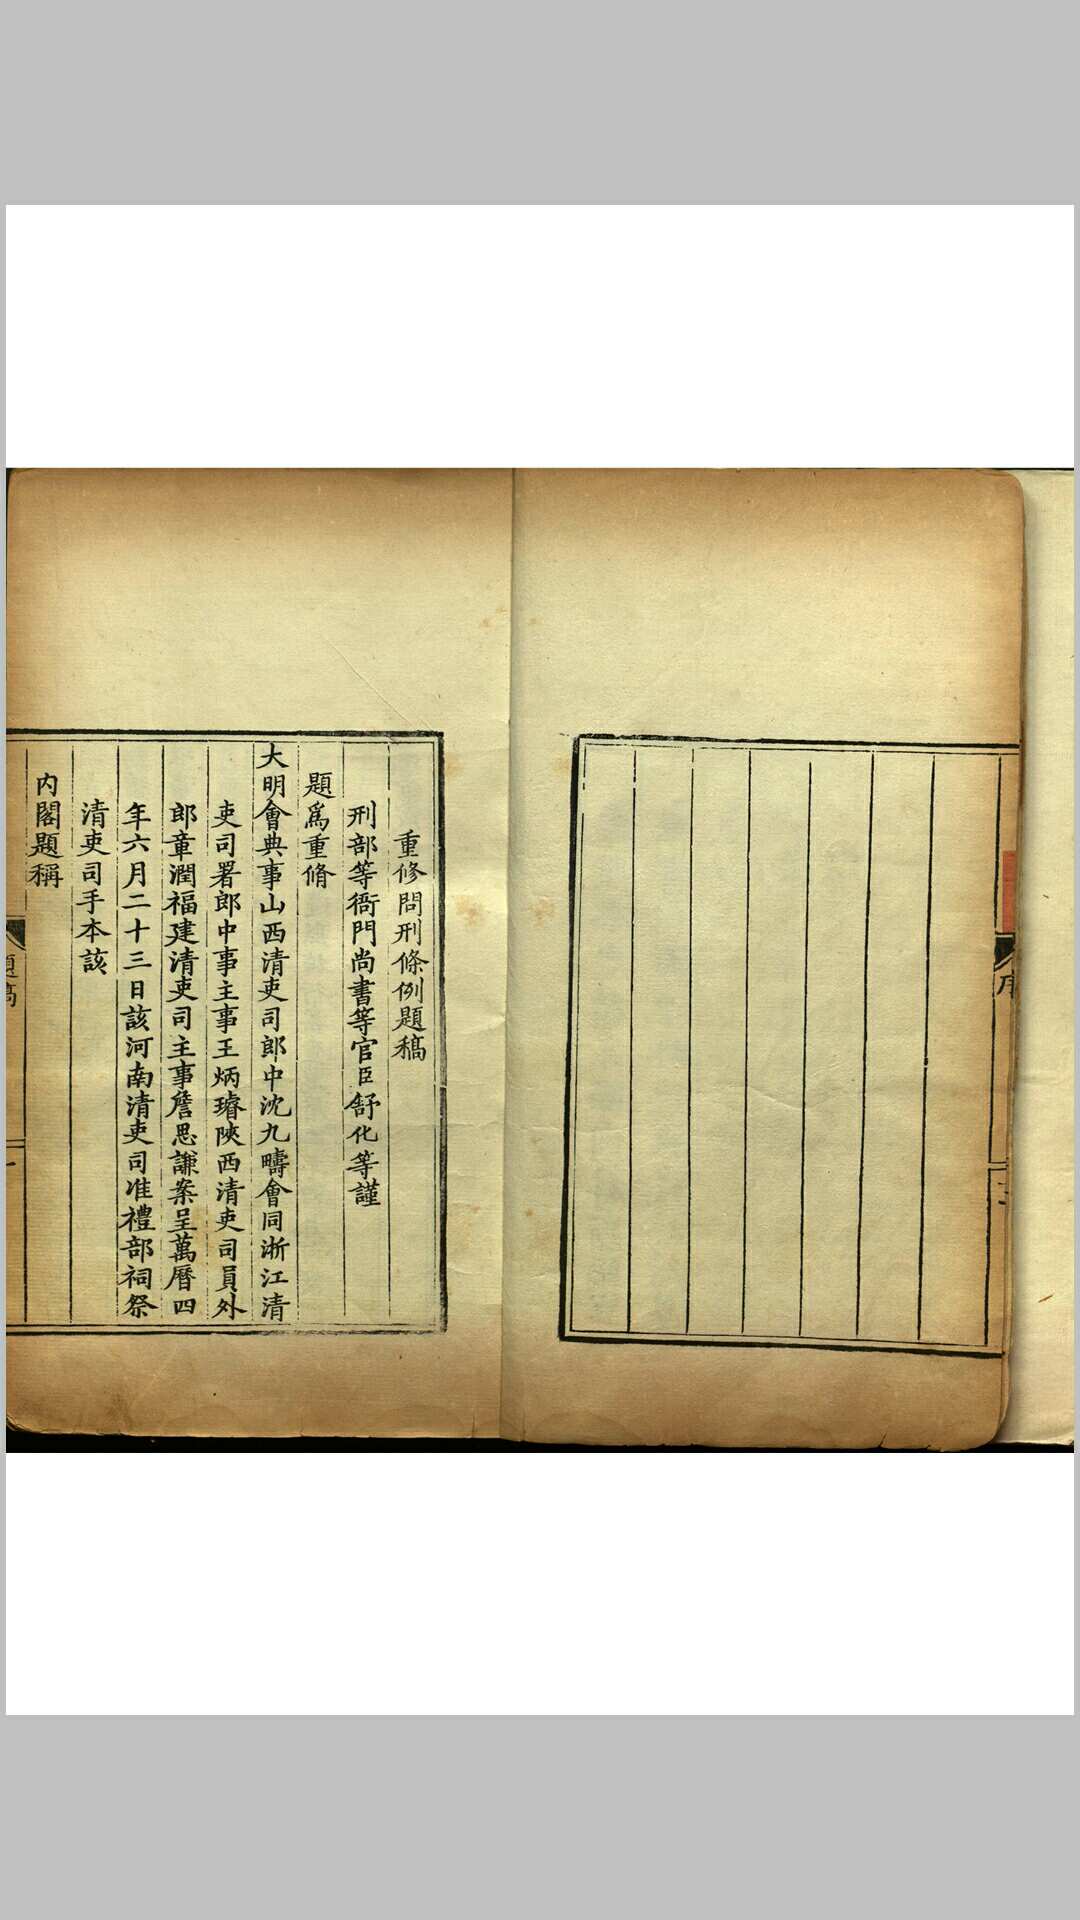 序
重修問刑條例題稿
刑部等衙門尚書等官臣舒化等謹
題爲重脩
大明會典事山西清吏司郎中沈九疇會同浙江清
吏司署郎中事主事王炳璿陝西清吏司員外
郎章潤福建清吏司主事詹思謙案呈萬曆四
年六月二十三日該河南清吏司准禮部祠祭
清吏司手本該
內閣題稱
題稿